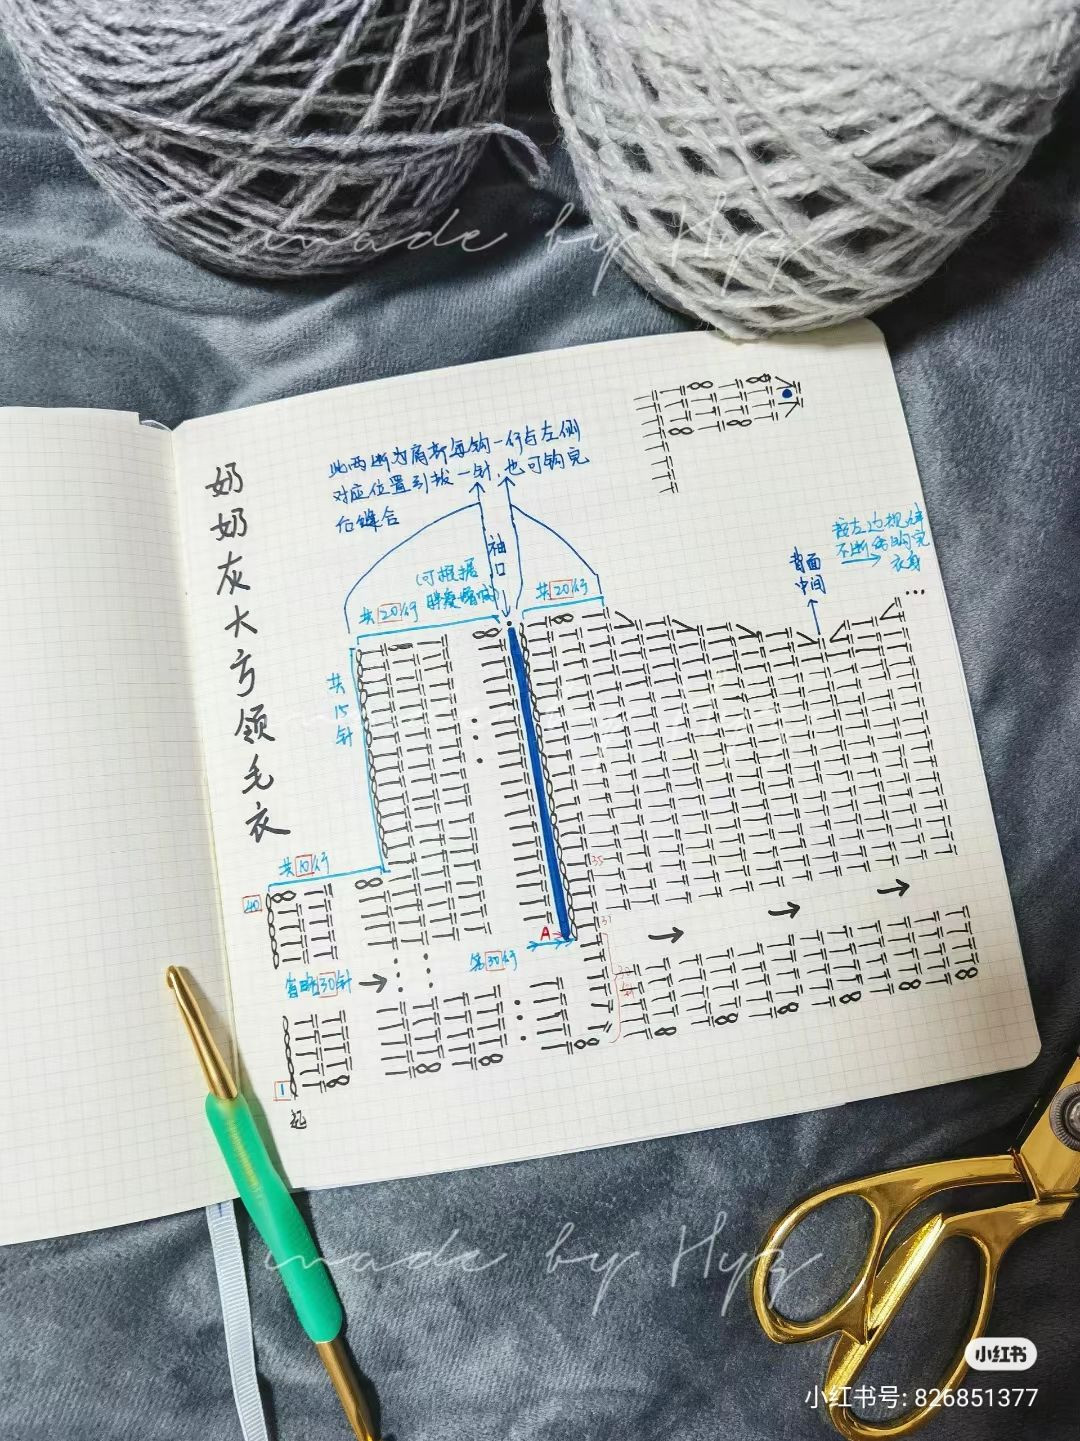 made by Hyz
奶奶灰大方领毛衣
此两断为肩部每钩一行与左侧
对应位置引拔一针,也可钩完
后缝合
袖口
(可根据
胖瘦增减)
共20行
共20行
背面
中间
按左边规律
不断线钩完
衣身
...
共
15
针
made by Hyz
共10行
40
35
31
A
第30行
省略30针
1
起
made by Hyz
小红书
小红书号: 826851377